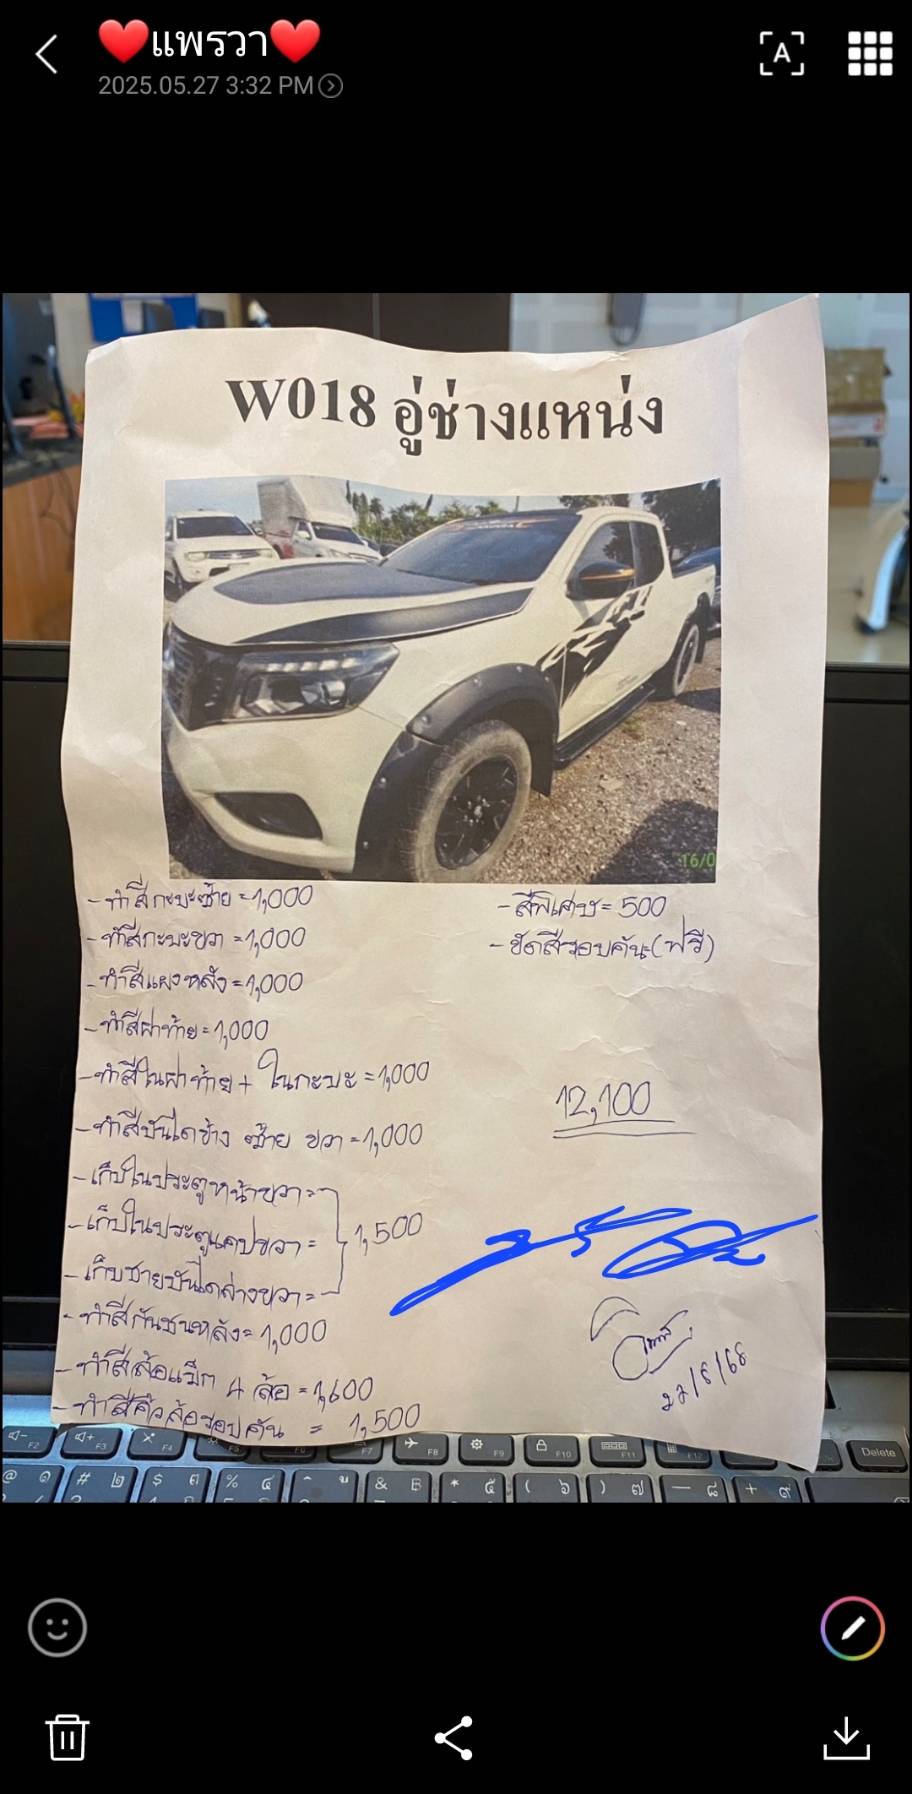 ❤️แพรวา❤️
2025.05.27 3:32 PM
W018 อู่ช่างแหน่ง
16/0
- ทำสีกะบะซ้าย = 1,000
- ทำสีกะบะขวา = 1,000
- ทำสีแผงหลัง = 1,000
- ทำสีฝาท้าย = 1,000
- ทำสีในฝาท้าย + ในกะบะ = 1,000
- ทำสีบันไดข้าง ซ้าย ขวา = 1,000
- เก็บในประตูหน้าขวา =
- เก็บในประตูแคปขวา = 1,500
- เก็บชายบันไดล่างขวา =
- ทำสีกันชนหลัง = 1,000
- ทำสีล้อแม็ก 4 ล้อ = 1,600
- ทำสีคิ้วล้อรอบคัน = 1,500
- สีพิเศษ = 500
- ขัดสีรอบคัน (ฟรี)
12,100
22/5/68
F2 F3 F4 F7 F8 F9 F10 F11 F12 Delete
@ ๑ # ๒ $ ๓ % ๔ & ฿ * ๕ ( ๖ ) ๗ — ๘ + ๙